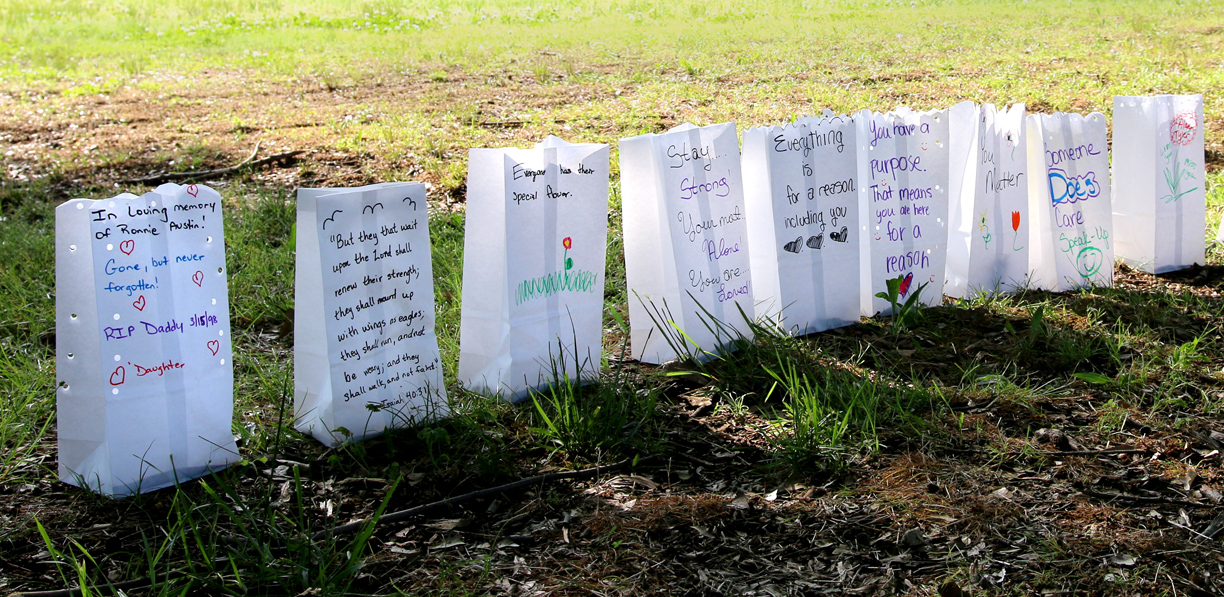 In Loving memory
of Ronnie Austin!
Gone, but never
forgotten!
RIP Daddy 3/15/98
'Daughter
"But they that wait
upon the Lord shall
renew their strength;
they shall mound up
with wings as eagles;
they shall run, and not
be weary; and they
shall walk, and not faint."
Isaiah 40:31
Everyone has their
Special Power.
Stay...
Strong!
Your not..
Alone!
You are..
Loved
Everything
is
for a reason
including you
You have a
purpose.
That means
you are here
for a
reason
You
Matter
Someone
Does
Care
Speak-Up